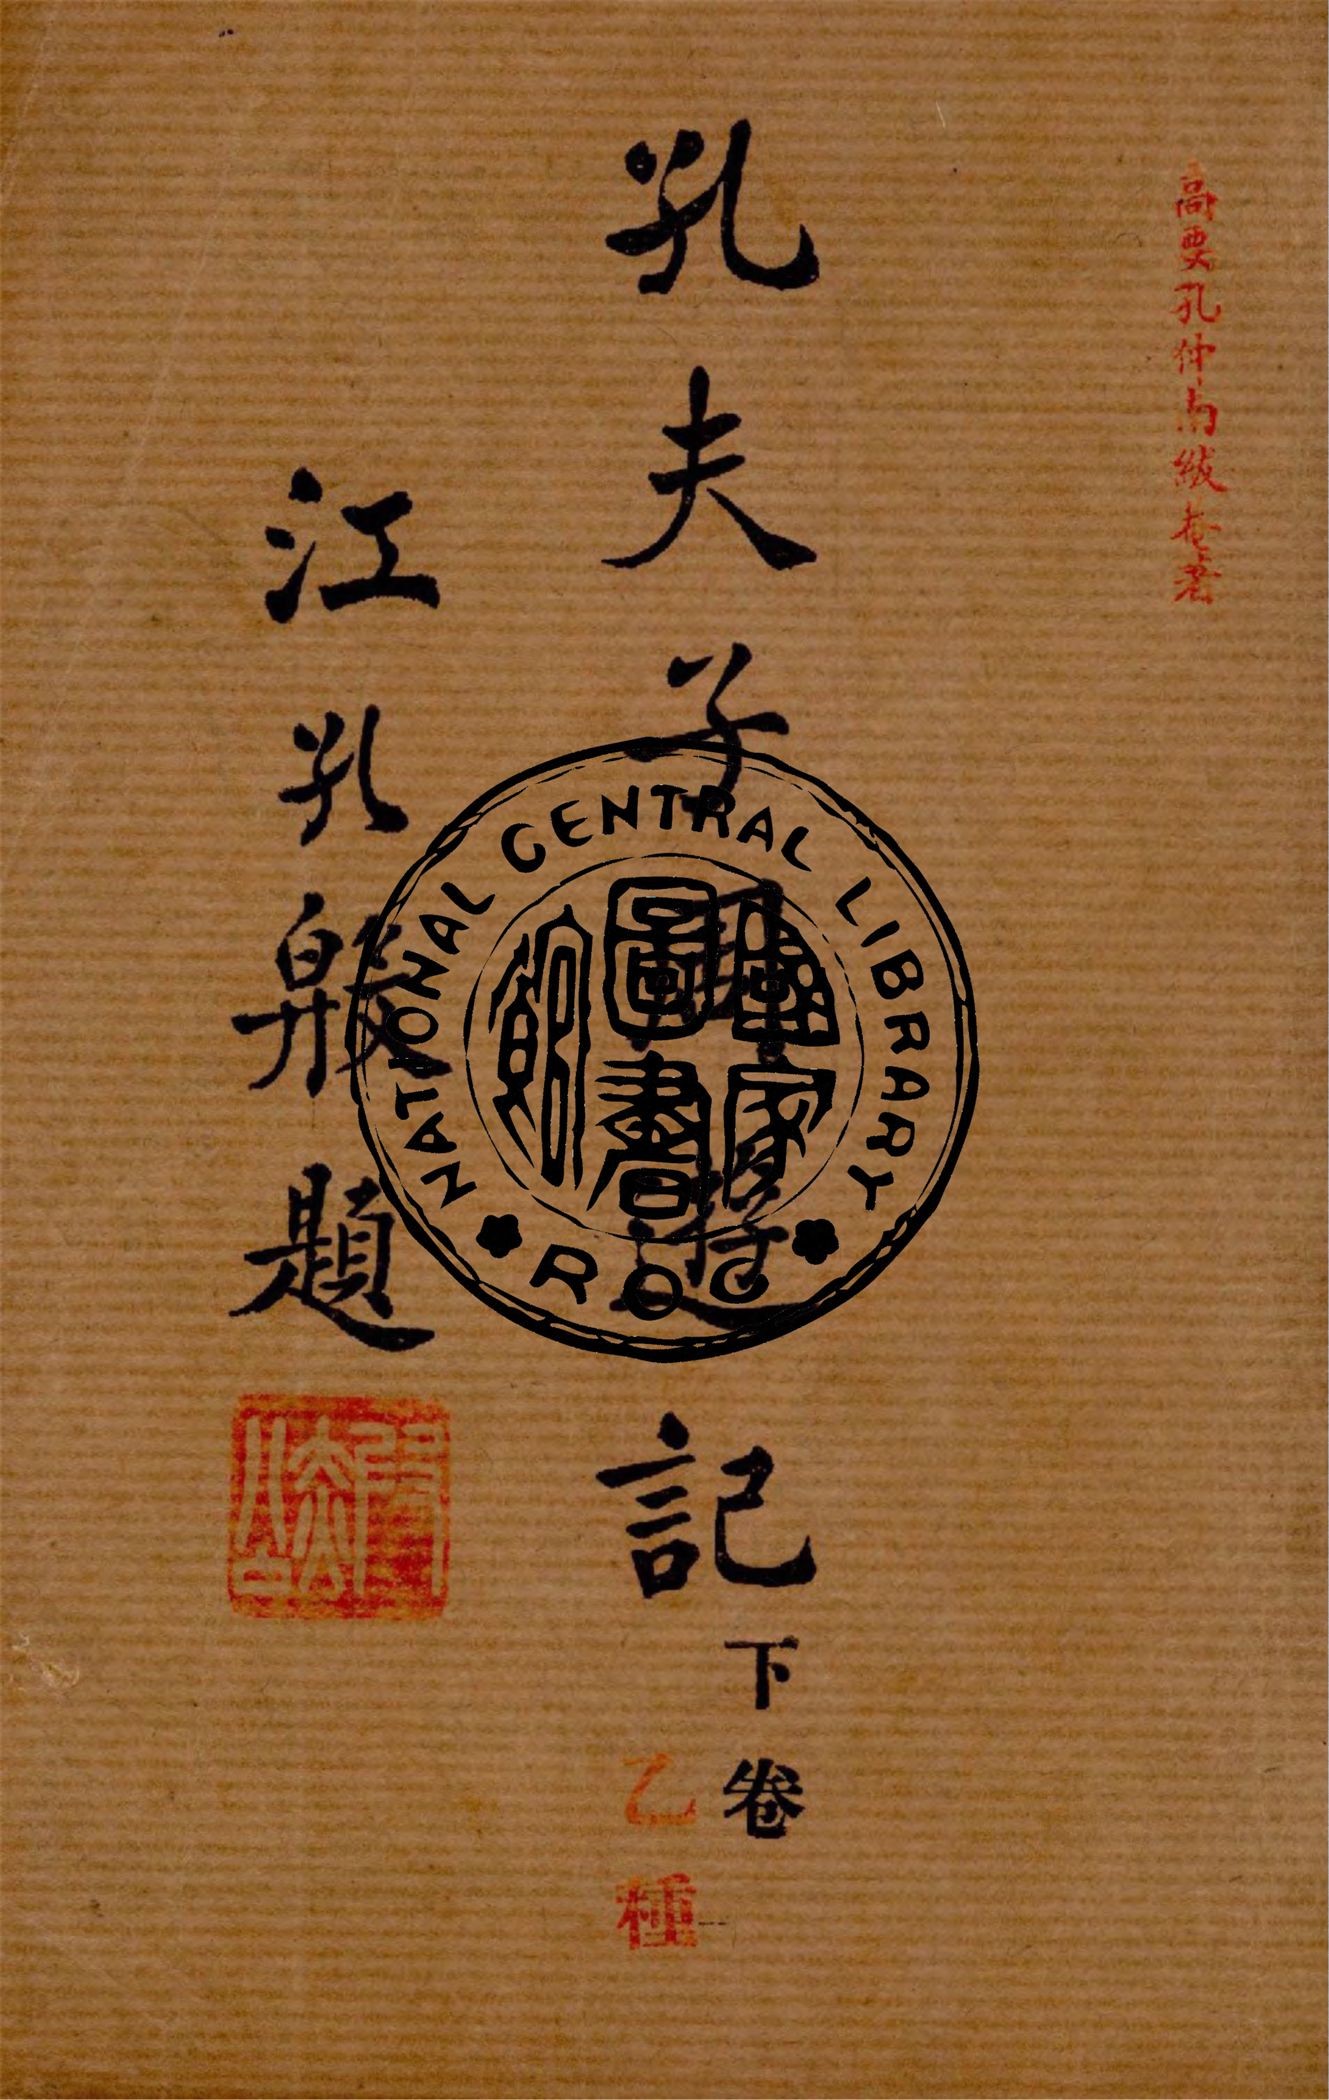 高要孔仲南紱菴著
孔夫子遊記
下卷
乙種
江孔殷題
NATIONAL CENTRAL LIBRARY
國家圖書館
ROC